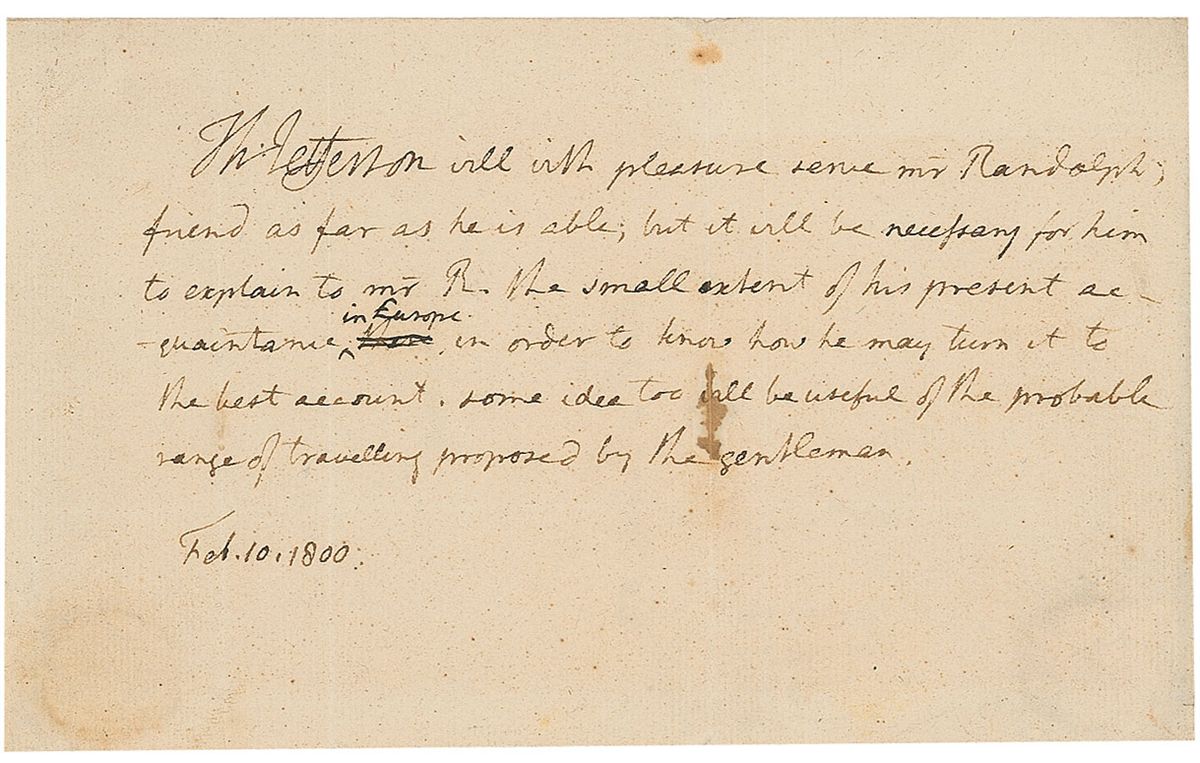 Th: Jefferson will with pleasure serve mr Randolph's
friend as far as he is able; but it will be necessary for him
to explain to mr R. the small extent of his present ac-
in Europe
-quaintance ^ there, in order to know how he may turn it to
the best account. some idea too will be useful of the probable
range of travelling proposed by the gentleman.
Feb. 10. 1800.